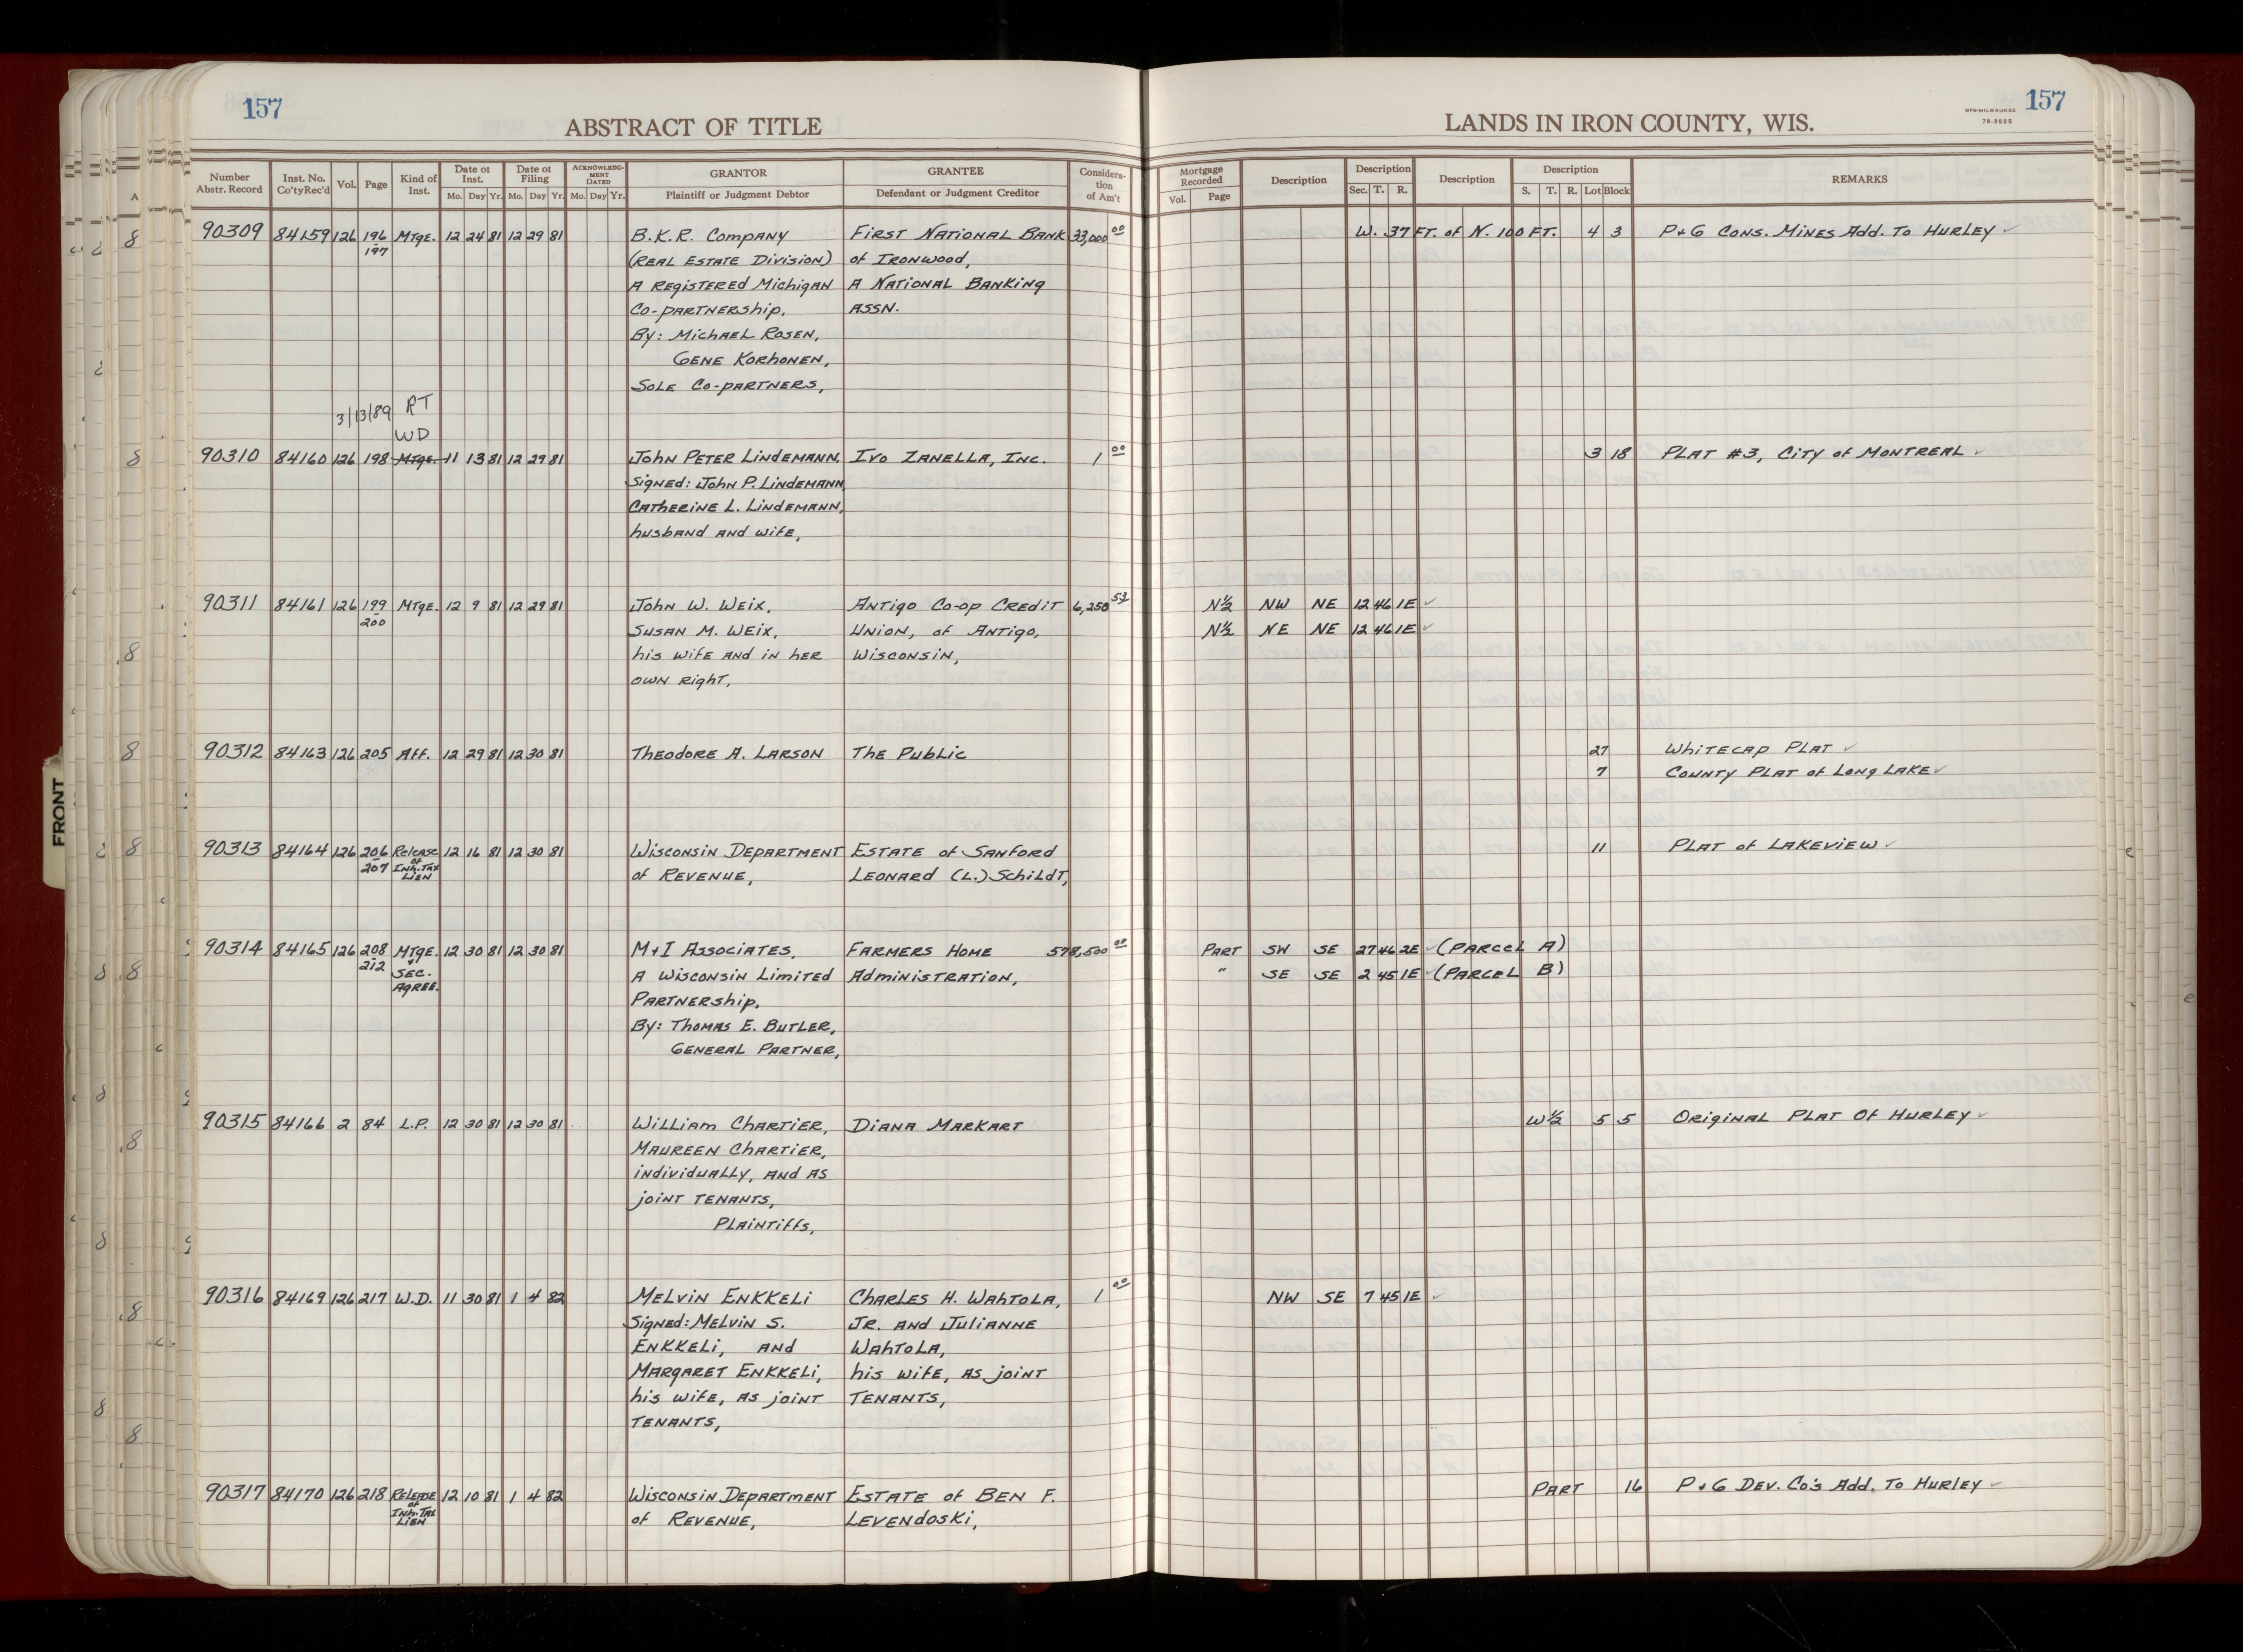 157
ABSTRACT OF TITLE
LANDS IN IRON COUNTY, WIS.
MPB-MILWAUKEE
78-3525
157
Number Abstr. Record | Inst. No. Co'ty Rec'd | Vol. | Page | Kind of Inst. | Date of Inst. Mo. Day Yr. | Date of Filing Mo. Day Yr. | ACKNOWLEDG-MENT DATED Mo. Day Yr. | GRANTOR Plaintiff or Judgment Debtor | GRANTEE Defendant or Judgment Creditor | Considera-tion of Am't | Mortgage Recorded Vol. Page | Description | Description Sec. T. R. | Description | Description S. T. R. Lot Block | REMARKS
90309 84159 126 196 MTGE. 12 24 81 12 29 81 B.K.R. COMPANY FIRST NATIONAL BANK 33,000 00 W. 37 FT. of N. 100 FT. 4 3 P+G CONS. MINES Add. To HURLEY ✓
197 (REAL ESTATE DIVISION) of IRONWOOD,
A REGISTERED MICHIGAN A NATIONAL BANKING
CO-PARTNERSHIP, ASSN.
By: MICHAEL ROSEN,
GENE KORHONEN,
SOLE CO-PARTNERS,
3/13/89 RT
WD
90310 84160 126 198 MTGE. 11 13 81 12 29 81 JOHN PETER LINDEMANN, IVO ZANELLA, INC. 1 00 3 18 PLAT #3, CITY of MONTREAL ✓
SIGNED: JOHN P. LINDEMANN,
CATHERINE L. LINDEMANN,
husband AND wife,
90311 84161 126 199 MTGE. 12 9 81 12 29 81 JOHN W. WEIX, ANTIGO CO-OP CREDIT 6,250 53 N½ NW NE 12 46 1E ✓
200 SUSAN M. WEIX, UNION, of ANTIGO, N½ NE NE 12 46 1E ✓
his WIFE AND IN HER WISCONSIN,
OWN RIGHT,
90312 84163 126 205 AFF. 12 29 81 12 30 81 THEODORE A. LARSON THE PUBLIC 27 WHITECAP PLAT ✓
7 COUNTY PLAT of LONG LAKE ✓
90313 84164 126 206 RELEASE 12 16 81 12 30 81 WISCONSIN DEPARTMENT ESTATE of SANFORD 11 PLAT of LAKEVIEW ✓
207 of INH. TAX LIEN of REVENUE, LEONARD (L.) SCHILDT,
90314 84165 126 208 MTGE. 12 30 81 12 30 81 M+I ASSOCIATES, FARMERS HOME 578,500 00 PART SW SE 27 46 2E ✓ (PARCEL A)
212 + SEC. A WISCONSIN LIMITED ADMINISTRATION, " SE SE 2 45 1E ✓ (PARCEL B)
AGREE. PARTNERSHIP,
By: THOMAS E. BUTLER,
GENERAL PARTNER,
90315 84166 2 84 L.P. 12 30 81 12 30 81 WILLIAM CHARTIER, DIANA MARKART W½ 5 5 ORIGINAL PLAT OF HURLEY ✓
MAUREEN CHARTIER,
individually, AND AS
joint TENANTS,
PLAINTIFFS,
90316 84169 126 217 W.D. 11 30 81 1 4 82 MELVIN ENKKELI CHARLES H. WAHTOLA, 1 00 NW SE 7 45 1E ✓
SIGNED: MELVIN S. JR. AND JULIANNE
ENKKELI, AND WAHTOLA,
MARGARET ENKKELI, his wife, AS joint
his wife, AS joint TENANTS,
TENANTS,
90317 84170 126 218 RELEASE 12 10 81 1 4 82 WISCONSIN DEPARTMENT ESTATE of BEN F. PART 16 P+G DEV. CO'S Add. To HURLEY ✓
of INH. TAX LIEN of REVENUE, LEVENDOSKI,
FRONT